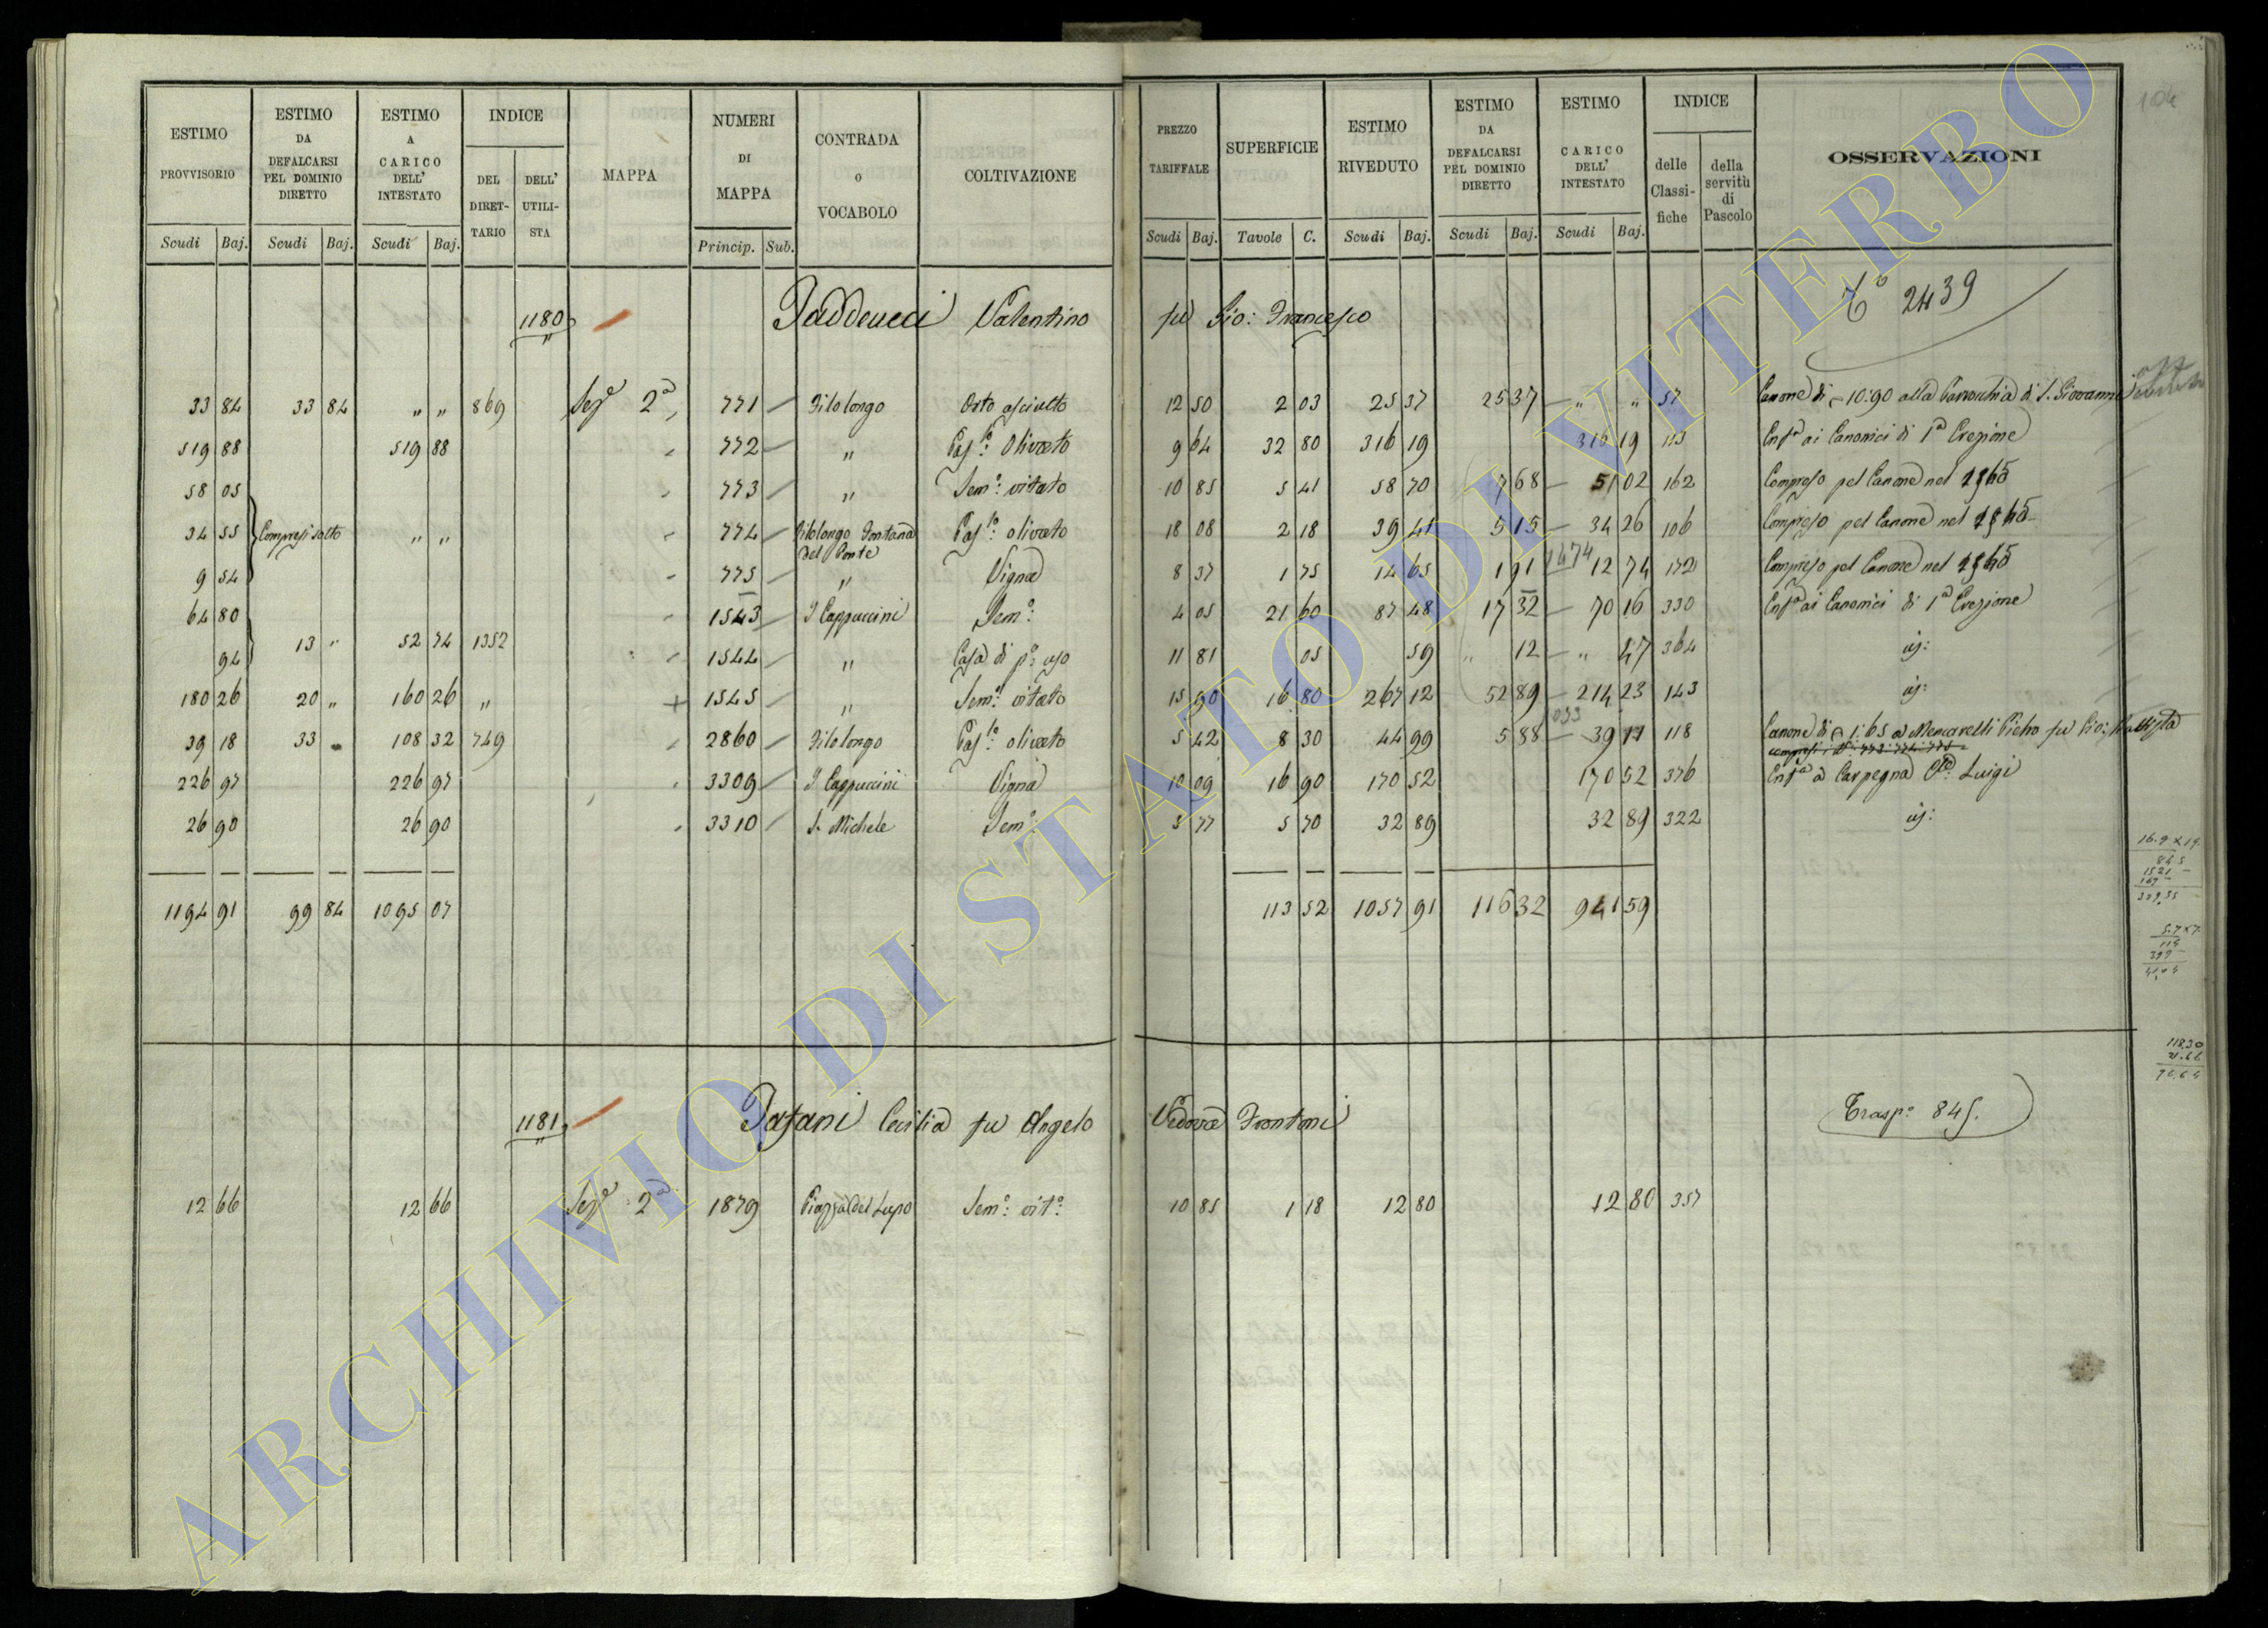 ESTIMO PROVVISORIO | ESTIMO DA DEFALCARSI PEL DOMINIO DIRETTO | ESTIMO A CARICO DELL' INTESTATO | INDICE DEL DIRETTARIO | DELL' UTILISTA | MAPPA | NUMERI DI MAPPA | CONTRADA O VOCABOLO | COLTIVAZIONE | PREZZO TARIFFALE | SUPERFICIE | ESTIMO RIVEDUTO | ESTIMO DA DEFALCARSI PEL DOMINIO DIRETTO | ESTIMO A CARICO DELL' INTESTATO | INDICE delle Classifiche | della servitù di Pascolo | OSSERVAZIONI
Scudi Baj. | Scudi Baj. | Scudi Baj. | Princip. Sub. | Scudi Baj. | Tavole C. | Scudi Baj. | Scudi Baj. | Scudi Baj.
104
1180 Taddeucci Valentino fu Gio: Francesco 2439
33 84 | 33 84 | " " | 869 | Sezе 2a | 771 | Filolongo | Orto asciutto | 12 50 | 2 03 | 25 37 | 25 37 | " " | 57 | Canone di 10:90 alla Parrocchia di S. Giovanni
519 88 | 519 88 | 772 | " | Pas.to Olivato | 9 64 | 32 80 | 316 19 | 316 19 | 113 | Enfa ai Canonici di 1a Erezione
58 05 | 773 | " | Sem.o vitato | 10 85 | 5 41 | 58 70 | 7 68 | 51 02 | 162 | Compreso pel Canone nel
34 55 | Compresi sotto | " " | 774 | Filolongo Fontana del Ponte | Pas.to olivato | 18 08 | 2 18 | 39 41 | 5 15 | 34 26 | 106 | Compreso pel Canone nel
9 54 | 775 | " | Vigna | 8 37 | 1 75 | 14 65 | 1 91 | 12 74 | 172 | Compreso pel Canone nel
64 80 | 1543 | I Cappuccini | Sem.o | 4 05 | 21 60 | 87 48 | 17 32 | 70 16 | 330 | Enfa ai Canonici di 1a Erezione
94 | 13 " | 52 74 | 1352 | 1544 | " | Casa di p.o uso | 11 81 | 05 | 59 | " 12 | " 47 | 364
180 26 | 20 " | 160 26 | " | 1545 | " | Sem.o vitato | 15 90 | 16 80 | 267 12 | 52 89 | 214 23 | 143
39 18 | 33 | 108 32 | 749 | 2860 | Filolongo | Pas.to olivato | 5 42 | 8 30 | 44 99 | 5 88 | 39 11 | 118 | Canone di 1:65 a Mencarelli Pietro fu Gio: Battista
226 97 | 226 97 | 3309 | I Cappuccini | Vigna | 10 09 | 16 90 | 170 52 | 170 52 | 376 | Enfa a Carpegna Luigi
26 90 | 26 90 | 3310 | S. Michele | Sem.o | 5 77 | 5 70 | 32 89 | 32 89 | 322
1194 91 | 99 84 | 1095 07 | 113 52 | 1057 91 | 116 32 | 941 59
1181 Tafani Cecilia fu Angelo Vedova Frontoni Trasp.o 845.
12 66 | 12 66 | Seze 2a | 1879 | Piazza del Lupo | Sem.o vit.o | 10 85 | 1 18 | 12 80 | 12 80 | 357
ARCHIVIO DI STATO DI VITERBO